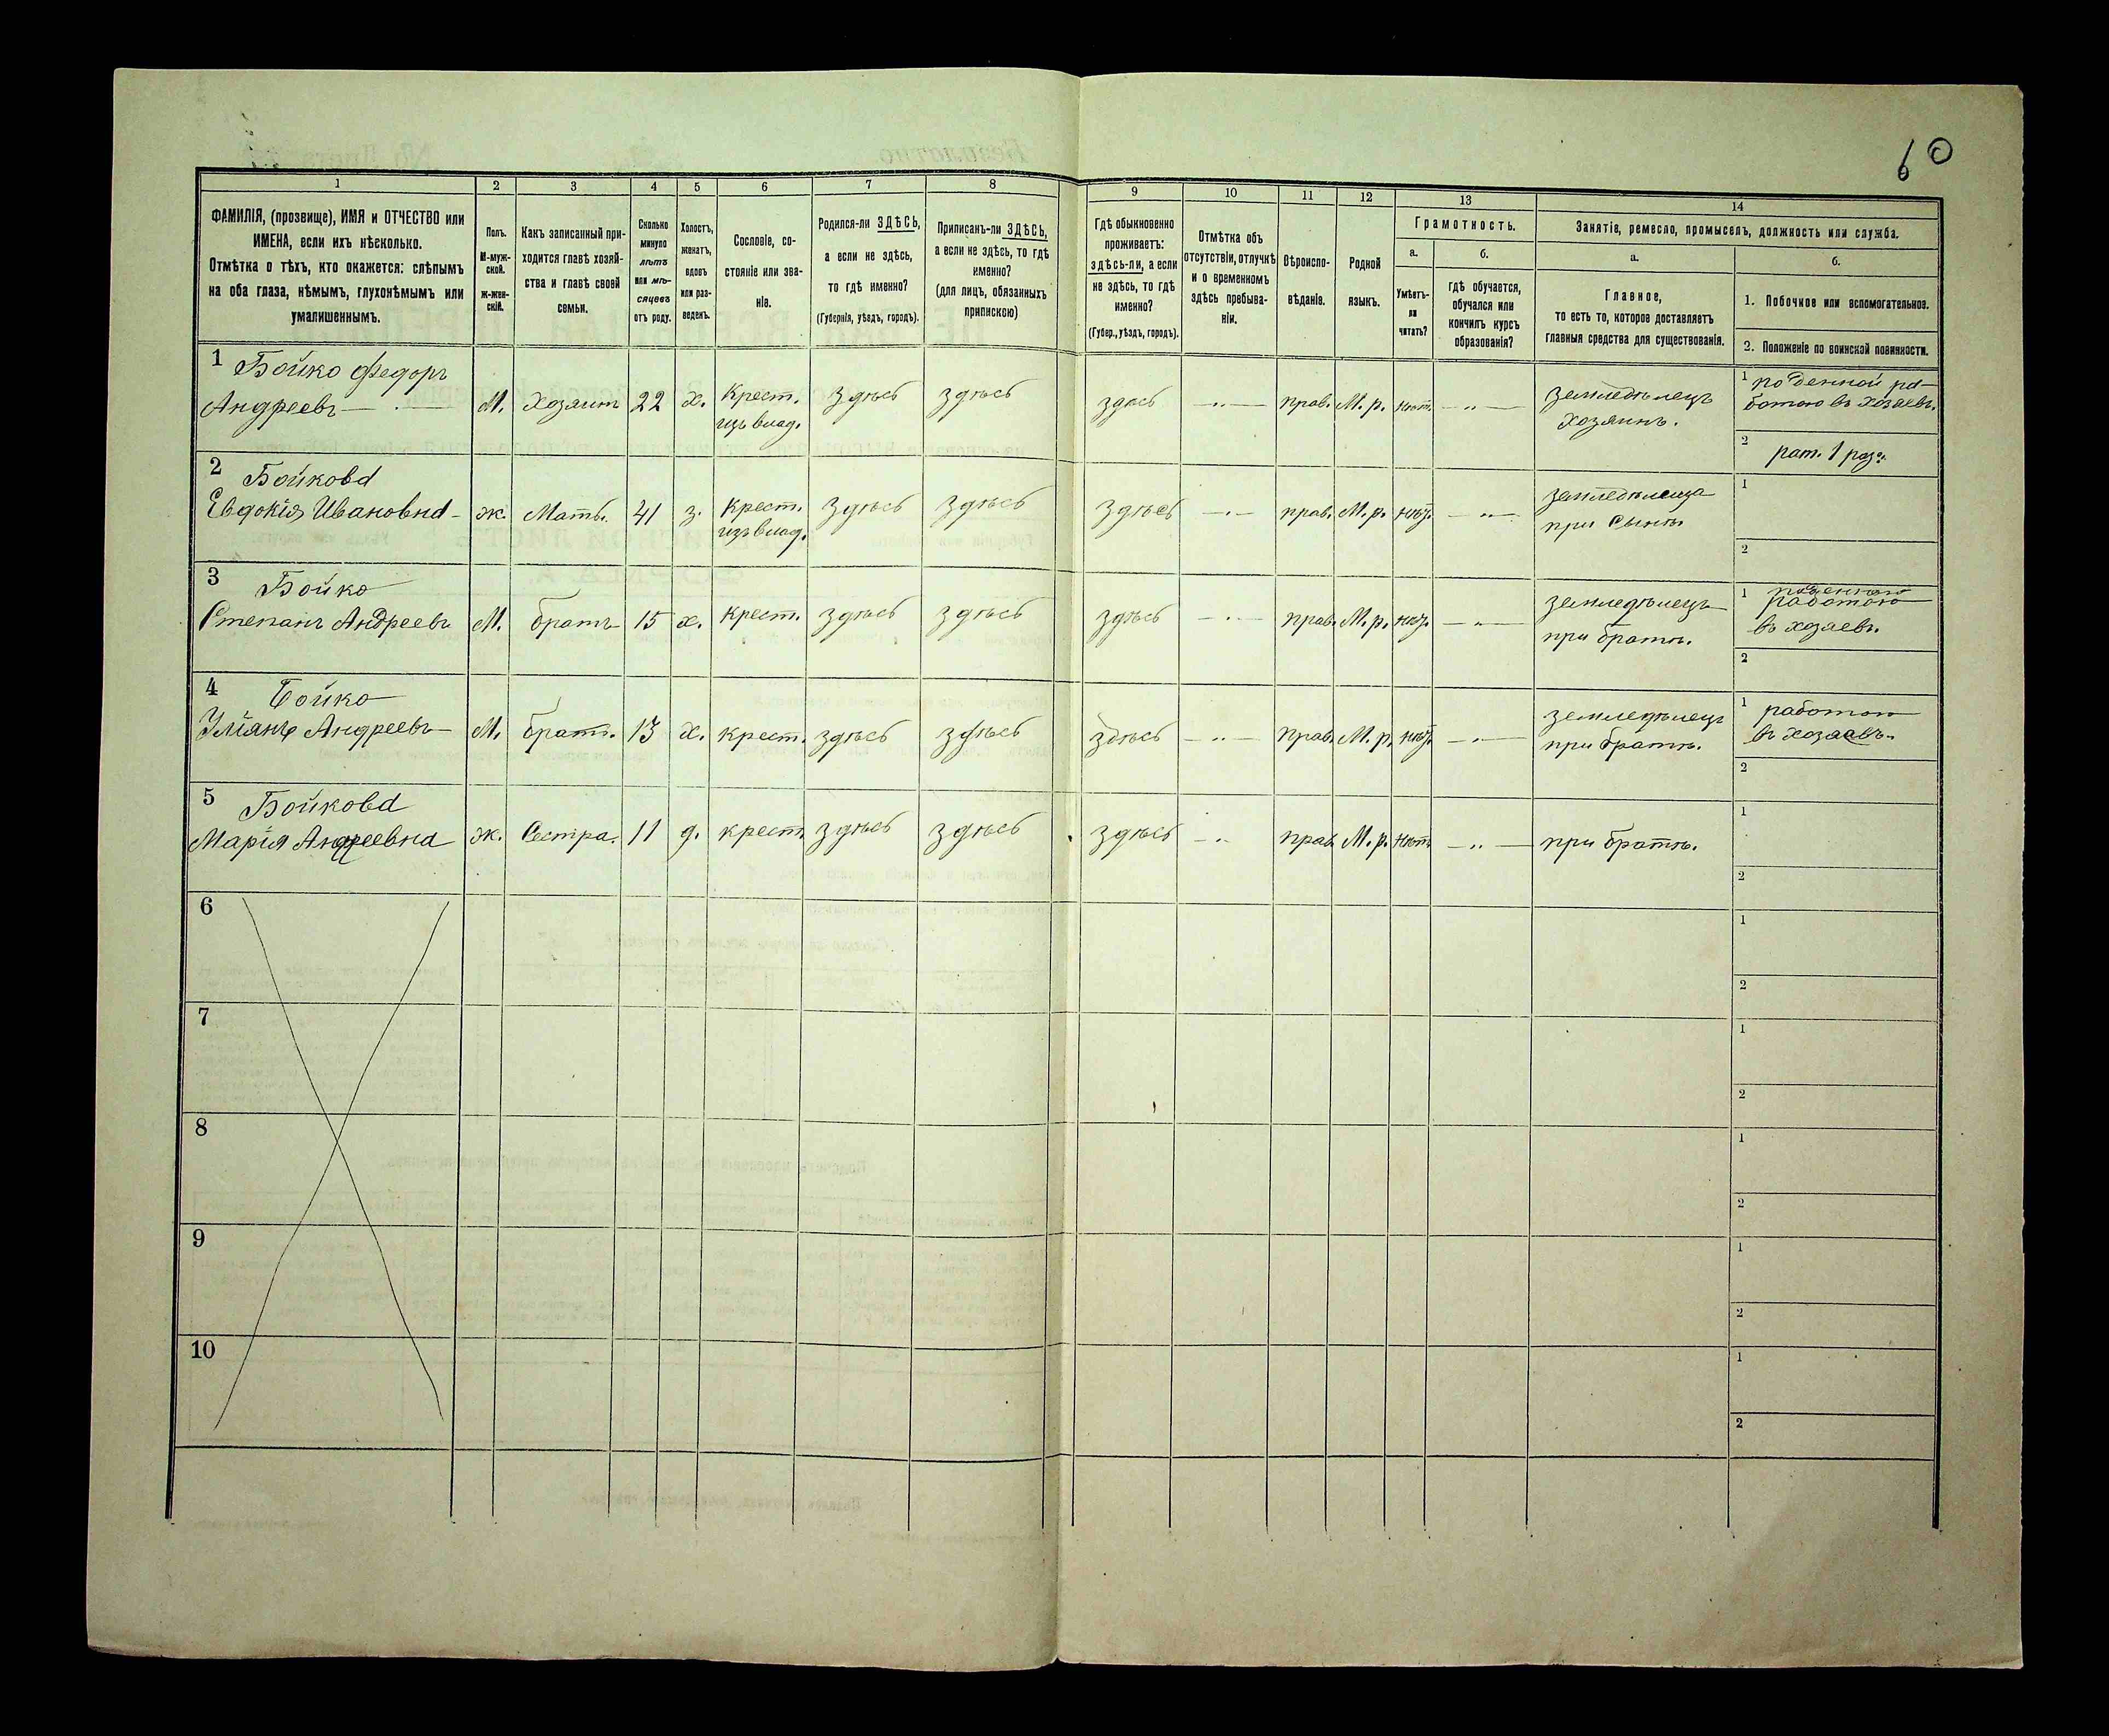 60
1 2 3 4 5 6 7 8 9 10 11 12 13 14
ФАМИЛІЯ, (прозвище), ИМЯ и ОТЧЕСТВО или
ИМЕНА, если ихъ нѣсколько.
Отмѣтка о тѣхъ, кто окажется: слѣпымъ
на оба глаза, нѣмымъ, глухонѣмымъ или
умалишеннымъ.
Полъ.
М-муж-
ской.
Ж-жен-
скій.
Какъ записанный при-
ходится главѣ хозяй-
ства и главѣ своей
семьи.
Сколько
минуло
лѣтъ
или мѣ-
сяцевъ
отъ роду.
Холостъ,
женатъ,
вдовъ
или раз-
веденъ.
Сословіе, со-
стояніе или зва-
ніе.
Родился-ли ЗДѢСЬ,
а если не здѣсь,
то гдѣ именно?
(Губернія, уѣздъ, городъ).
Приписанъ-ли ЗДѢСЬ,
а если не здѣсь, то гдѣ
именно?
(для лицъ, обязанныхъ
припискою)
Гдѣ обыкновенно
проживаетъ:
здѣсь-ли, а если
не здѣсь, то гдѣ
именно?
(Губер., уѣздъ, городъ).
Отмѣтка объ
отсутствіи, отлучкѣ
и о временномъ
здѣсь пребыва-
ніи.
Вѣроиспо-
вѣданіе.
Родной
языкъ.
Грамотность.
а.
Умѣетъ-
ли
читать?
б.
гдѣ обучается,
обучался или
кончилъ курсъ
образованія?
Занятіе, ремесло, промыселъ, должность или служба.
а.
Главное,
то есть то, которое доставляетъ
главныя средства для существованія.
б.
1. Побочное или вспомогательное.
2. Положеніе по воинской повинности.
1 Бойко Федоръ
Андреевъ — М. Хозяинъ 22 х. Крест. здѣсь здѣсь здѣсь —"— прав. М. р. нѣт. —"— земледѣлецъ 1 поденной ра-
изъ влад. хозяинъ. ботою въ хозяевъ.
2 рат. 1 раз.
2 Бойкова
Евдокія Ивановна - ж. Мать. 41 з. крест. здѣсь здѣсь здѣсь —"— прав. М. р. нѣт. —"— земледѣлеца 1
изъ влад. при сынѣ 2
3 Бойко
Степанъ Андреевъ М. братъ 15 х. крест. здѣсь здѣсь здѣсь —"— прав. М. р. нѣт. —"— земледѣлецъ 1 поденною
работою
при братѣ. въ хозаевъ.
2
4 Бойко
Уліянъ Андреевъ — М. брат. 13 х. крест. здѣсь здѣсь здѣсь —"— прав. М. р. нѣт. —"— земледѣлец 1 работою
при братѣ. въ хозаевъ.
2
5 Бойкова
Марія Андреевна ж. Сестра. 11 д. крест. здѣсь здѣсь здѣсь —"— прав. М. р. нѣт. —"— при братѣ. 1
2
6 1
2
7 1
2
8 1
2
9 1
2
10 1
2